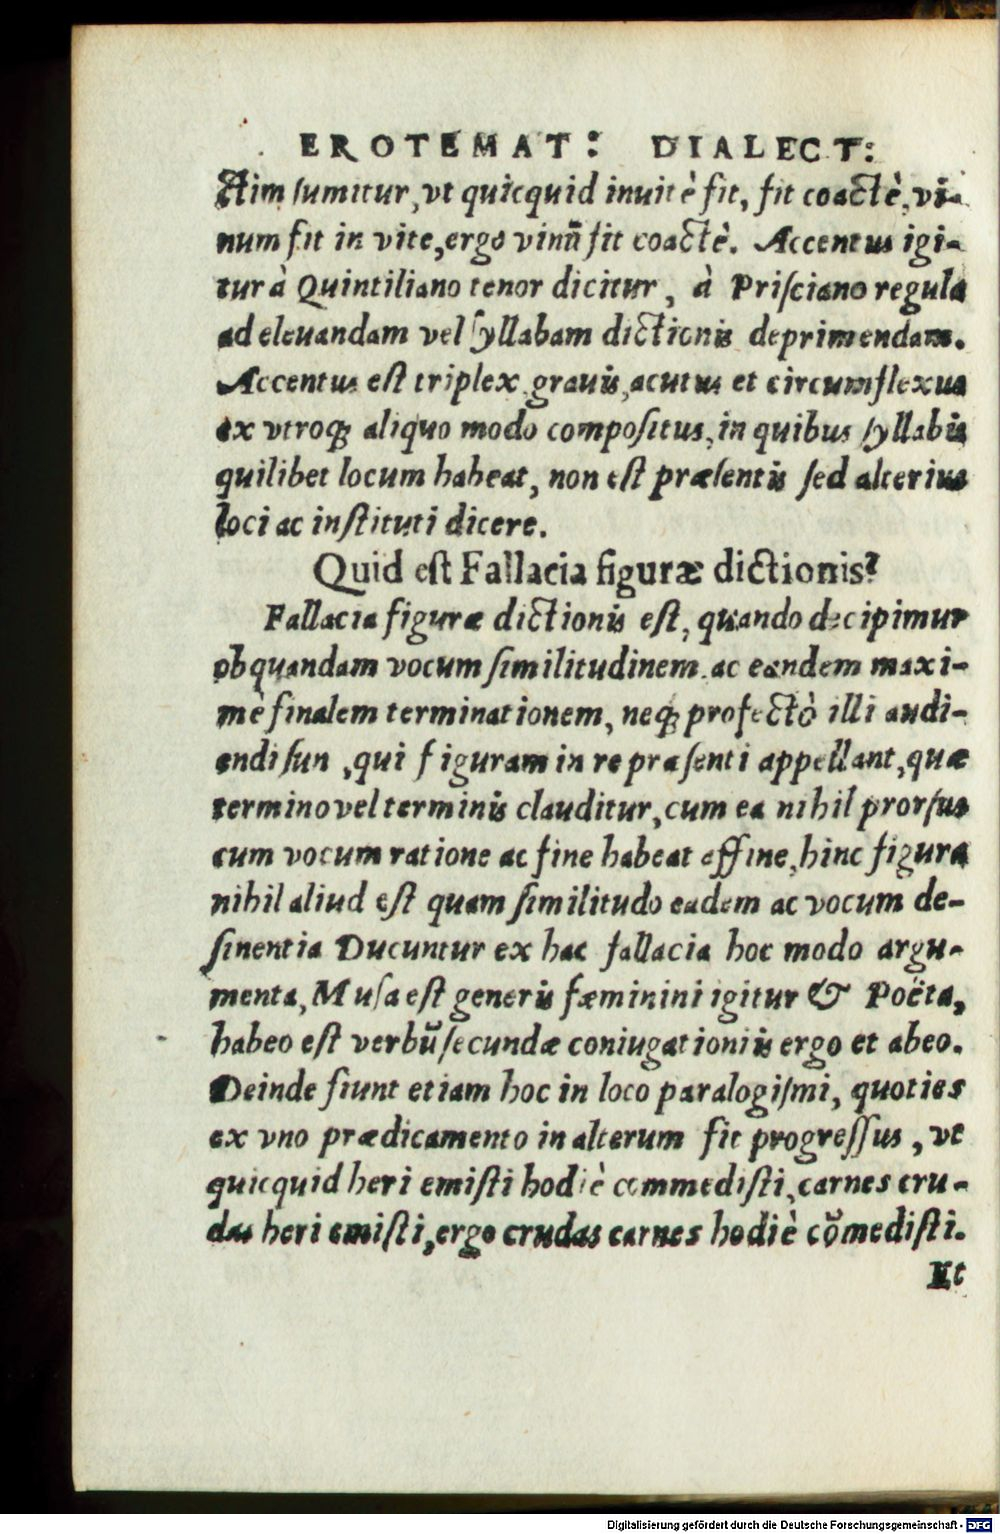 EROTEMAT: DIALECT:
ctim sumitur, vt quicquid inuitè fit, fit coactè, vi-
num fit in vite, ergo vinū fit coactè. Accentus igi-
tur à Quintiliano tenor dicitur, à Prisciano regula
ad eleuandam vel syllabam dictionis deprimendam.
Accentus est triplex, grauis, acutus et circumflexus
ex vtroq; aliquo modo compositus, in quibus syllabis
quilibet locum habeat, non est præsentis sed alterius
loci ac instituti dicere.
Quid est Fallacia figuræ dictionis?
Fallacia figuræ dictionis est, quando decipimur
ob quandam vocum similitudinem, ac eandem maxi-
mè finalem terminationem, neq; profectò illi audi-
endi sun, qui figuram in re præsenti appellant, quæ
termino vel terminis clauditur, cum ea nihil prorsus
cum vocum ratione ac fine habeat affine, hinc figura
nihil aliud est quam similitudo eadem ac vocum de-
sinentia Ducuntur ex hac fallacia hoc modo argu-
menta, Musa est generis fæminini igitur & Poëta,
habeo est verbū secundæ coniugationiis ergo et abeo.
Deinde fiunt etiam hoc in loco paralogismi, quoties
ex vno prædicamento in alterum fit progressus, vt
quicquid heri emisti hodiè commedisti, carnes cru-
das heri emisti, ergo crudas carnes hodiè cōmedisti.
Et
Digitalisierung gefördert durch die Deutsche Forschungsgemeinschaft - DFG